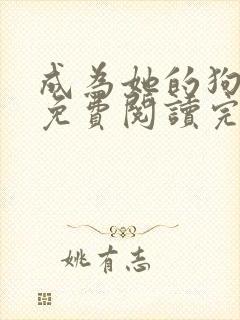 成為她的狗
免費閱讀完
姚有志